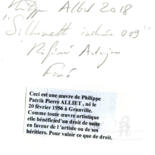 Philippe Alliet 2018
"Silhouette inclinée 009"
Ceci est une œuvre de Philippe
Patrik Pierre ALLIET , né le
20 février 1986 à Granville.
Comme toute œuvre artistique
elle bénéficie d'un droit de suite
en faveur de l'artiste ou de ses
héritiers. Pour valoir ce que de droit.